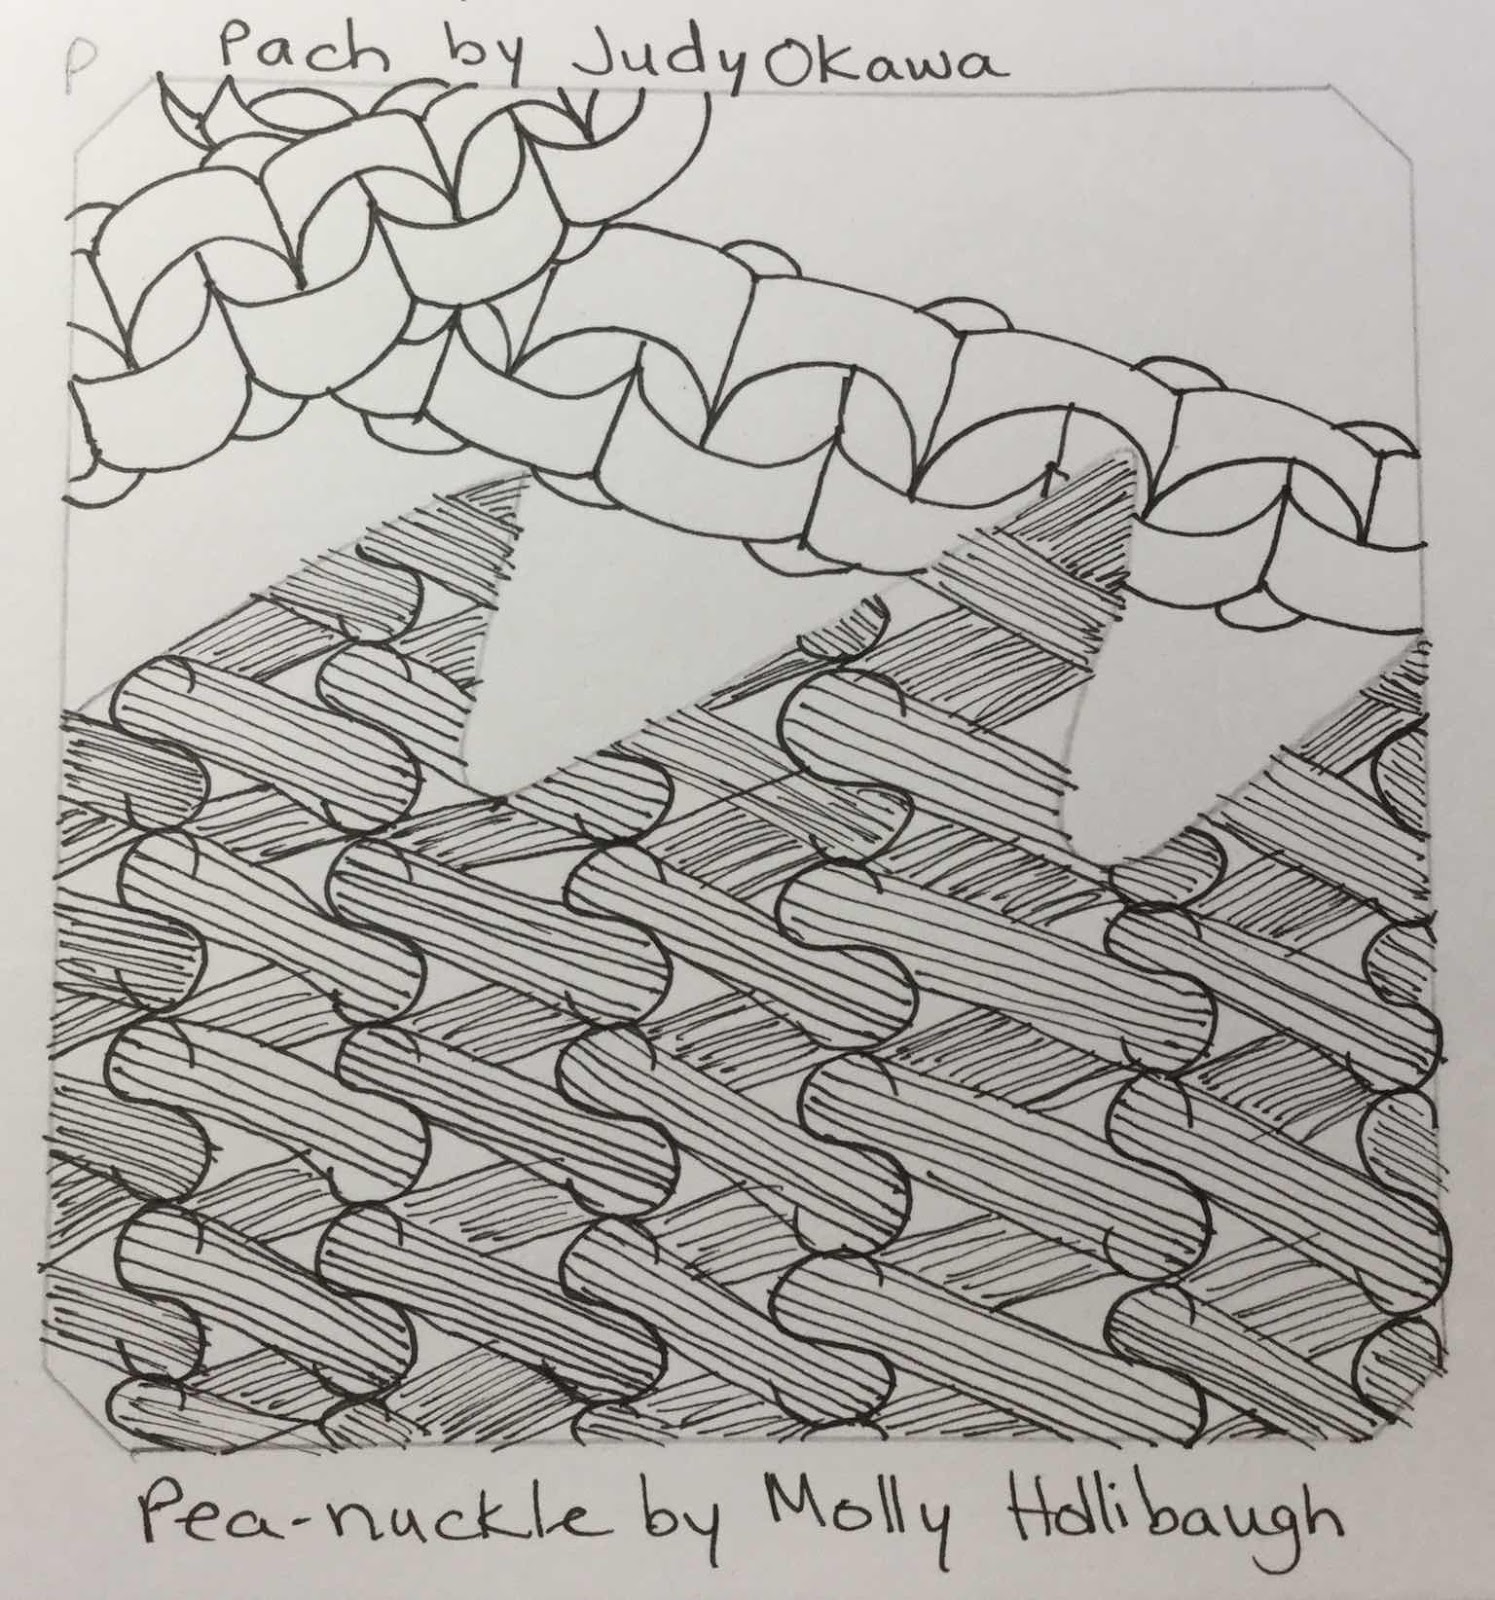 P
Pach by Judy Okawa
Pea-nuckle by Molly Hollibaugh